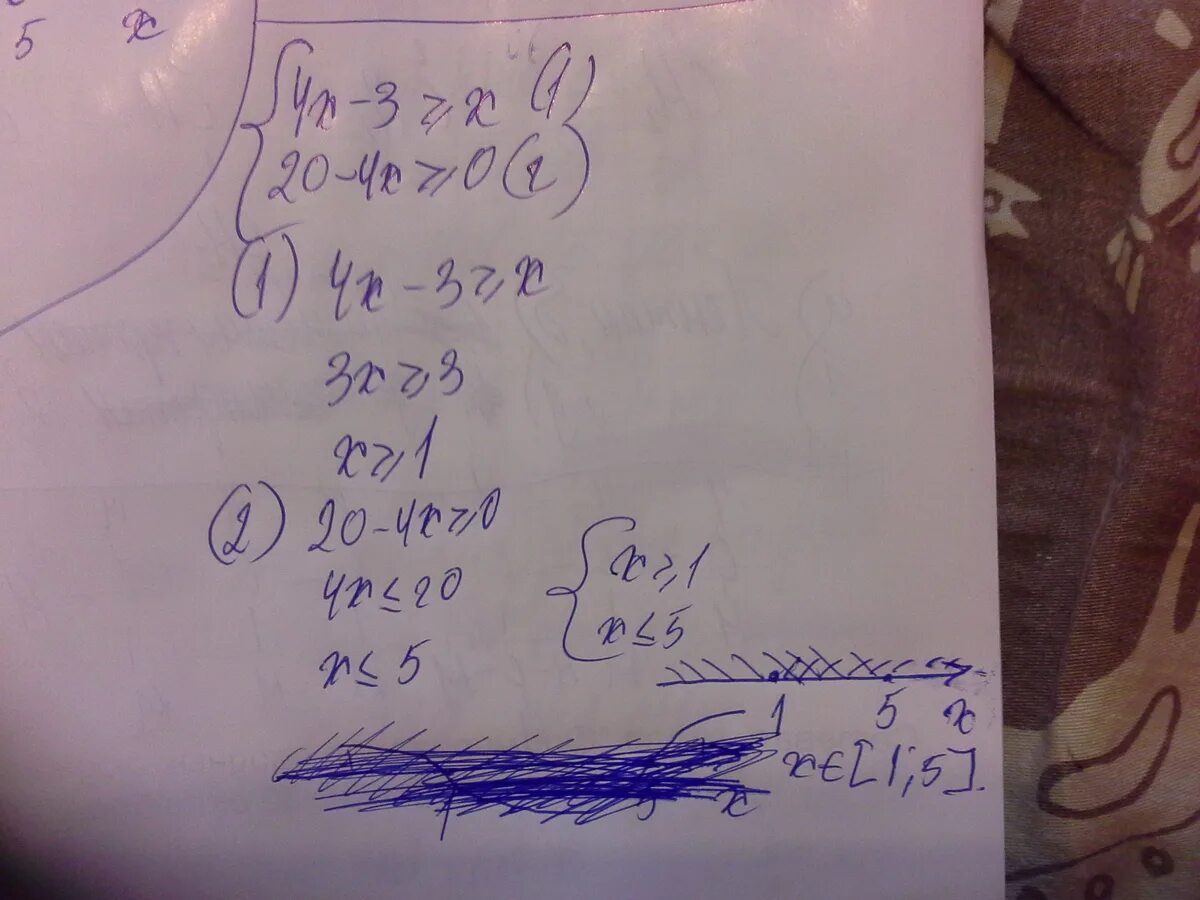 5 x
4x - 3 ⩾ x (1)
20 - 4x ⩾ 0 (2)
(1) 4x - 3 ⩾ x
3x ⩾ 3
x ⩾ 1
(2) 20 - 4x ⩾ 0
4x ≤ 20
x ≤ 5
x ⩾ 1
x ≤ 5
1 5 x
x ∈ [1; 5].
x